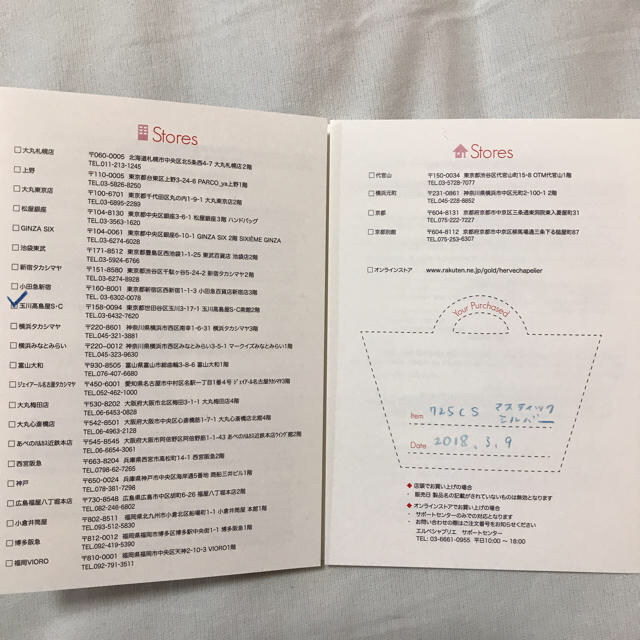 Stores
大丸札幌店 〒060-0005 北海道札幌市中央区北5条西4-7 大丸札幌店2階
TEL.011-213-1245
上野 〒110-0005 東京都台東区上野3-24-6 PARCO_ya上野1階
TEL.03-5826-8250
大丸東京店 〒100-6701 東京都千代田区丸の内1-9-1 大丸東京店2階
TEL.03-6895-2289
松屋銀座 〒104-8130 東京都中央区銀座3-6-1 松屋銀座3階 ハンドバッグ
TEL.03-3563-1620
GINZA SIX 〒104-0061 東京都中央区銀座6-10-1 GINZA SIX 2階 SIXIÈME GINZA
TEL.03-6274-6028
池袋東武 〒171-8512 東京都豊島区西池袋1-1-25 東武百貨店 池袋店2階
TEL.03-5924-6766
新宿タカシマヤ 〒151-8580 東京都渋谷区千駄ヶ谷5-24-2 新宿タカシマヤ2階
TEL.03-6274-8928
小田急新宿 〒160-8001 東京都新宿区西新宿1-1-3 小田急百貨店新宿店3階
TEL.03-6302-0078
玉川高島屋S・C 〒158-0094 東京都世田谷区玉川3-17-1 玉川高島屋S・C南館2階
TEL.03-6432-7620
横浜タカシマヤ 〒220-8601 神奈川県横浜市西区南幸1-6-31 横浜タカシマヤ3階
TEL.045-321-3090
横浜みなとみらい 〒220-0012 神奈川県横浜市西区みなとみらい3-5-1 マークイズみなとみらい1階
TEL.045-323-9630
富山大和 〒930-8505 富山県富山市総曲輪3-8-6 富山大和1階
TEL.076-407-6680
ジェイアール名古屋タカシマヤ 〒450-6001 愛知県名古屋市中村区名駅一丁目1番4号 ジェイアール名古屋タカシマヤ3階
TEL.052-462-1000
大丸梅田店 〒530-8202 大阪府大阪市北区梅田3-1-1 大丸梅田店4階
TEL.06-6453-0828
大丸心斎橋店 〒542-8501 大阪府大阪市中央区心斎橋筋1-7-1 大丸心斎橋店北館4階
TEL.06-4963-2128
あべのハルカス近鉄本店 〒545-8545 大阪府大阪市阿倍野区阿倍野筋1-1-43 あべのハルカス近鉄本店ウイング館2階
TEL.06-6654-3061
西宮阪急 〒663-8204 兵庫県西宮市高松町14-1 西宮阪急2階
TEL.0798-62-7265
神戸 〒650-0024 兵庫県神戸市中央区海岸通5番地 商船三井ビル1階
TEL.078-381-7298
広島福屋八丁堀本店 〒730-8548 広島県広島市中区胡町6-26 福屋八丁堀本店2階
TEL.082-246-6802
小倉井筒屋 〒802-8511 福岡県北九州市小倉北区船場町1-1 小倉井筒屋 本館1階
TEL.093-512-5830
博多阪急 〒812-0012 福岡県福岡市博多区博多駅中央街1-1 博多阪急2階
TEL.092-419-5390
福岡VIORO 〒810-0001 福岡県福岡市中央区天神2-10-3 VIORO1階
TEL.092-791-3511
Stores
代官山 〒150-0034 東京都渋谷区代官山町15-8 OTM代官山1階
TEL.03-5728-7077
横浜元町 〒231-0861 神奈川県横浜市中区元町2-100-1 2階
TEL.045-228-8852
京都 〒604-8131 京都府京都市中京区三条通東洞院東入菱屋町31
TEL.075-222-7227
京都別館 〒604-8112 京都府京都市中京区柳馬場通三条下る槌屋町87
TEL.075-253-6307
オンラインストア www.rakuten.ne.jp/gold/hervechapelier
Your Purchased
Item 725CS マスティック
シルバー
Date 2018.3.9
◆店頭でお買い上げの場合
・販売日 製品名の記載がされていないものは無効となります
◆オンラインストアでお買い上げの場合
・サポートセンターのみでの対応となります
・お問い合わせの際はご注文番号をお知らせください
エルベシャプリエ サポートセンター
TEL: 03-6661-0955 平日10:00〜18:00